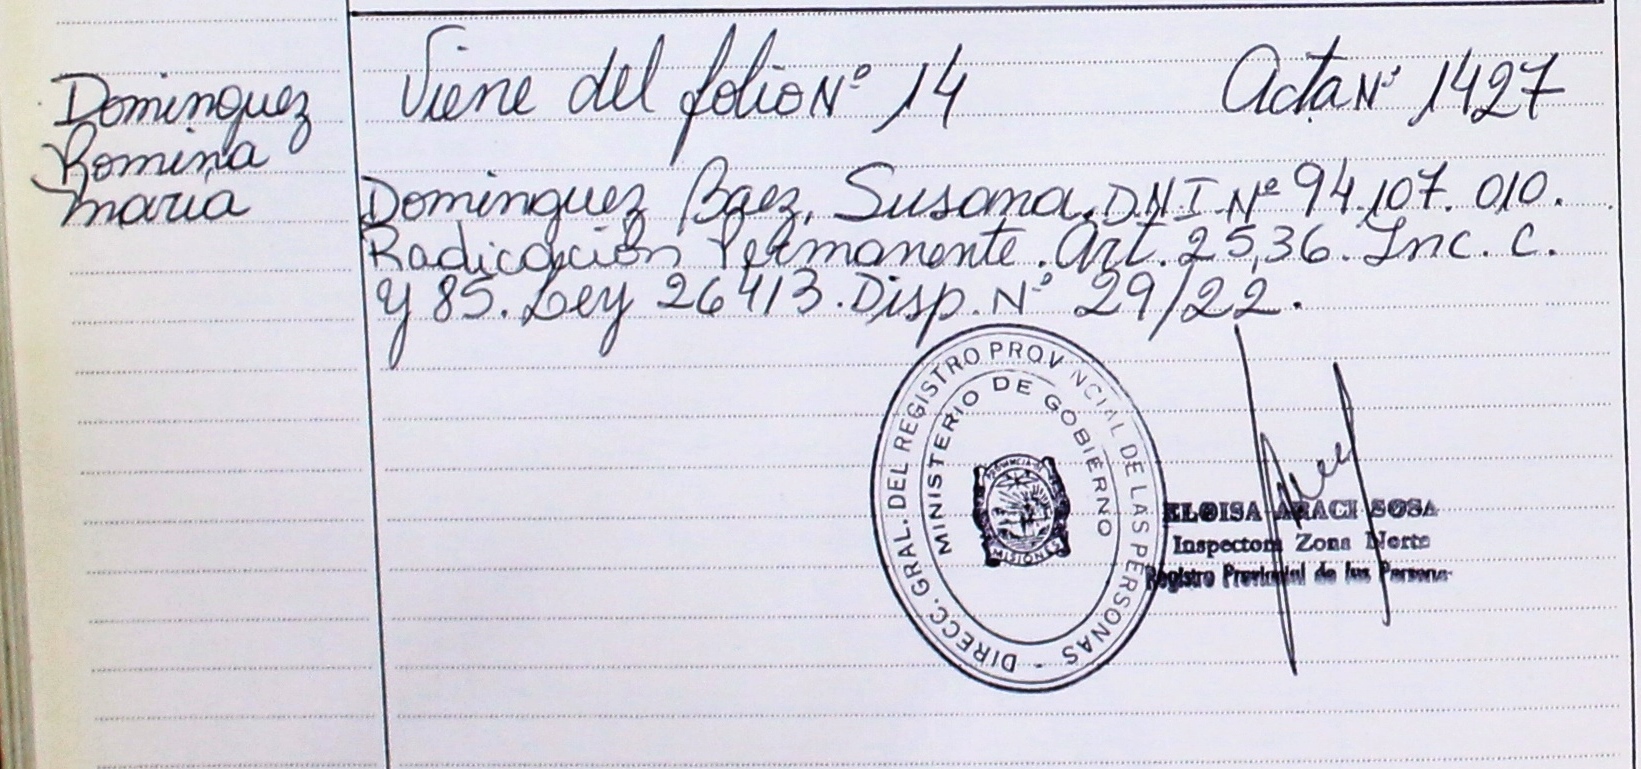 Dominguez
Romina
maria
Viene del folio Nº 14 Acta Nº 1427
Dominguez Baez, Susana. D.N.I. Nº 94.107.010.
Radicación Permanente. Art. 25,36. Inc. C.
y 85. Ley 26413. Disp. Nº 29/22.
DIRECC. GRAL. DEL REGISTRO PROV NCIAL DE LAS PERSONAS -
MINISTERIO DE GOBIERNO
PROVINCIA DE
MISIONES
ELOISA ARACI SOSA
Inspectora Zona Norte
Registro Provincial de las Persona